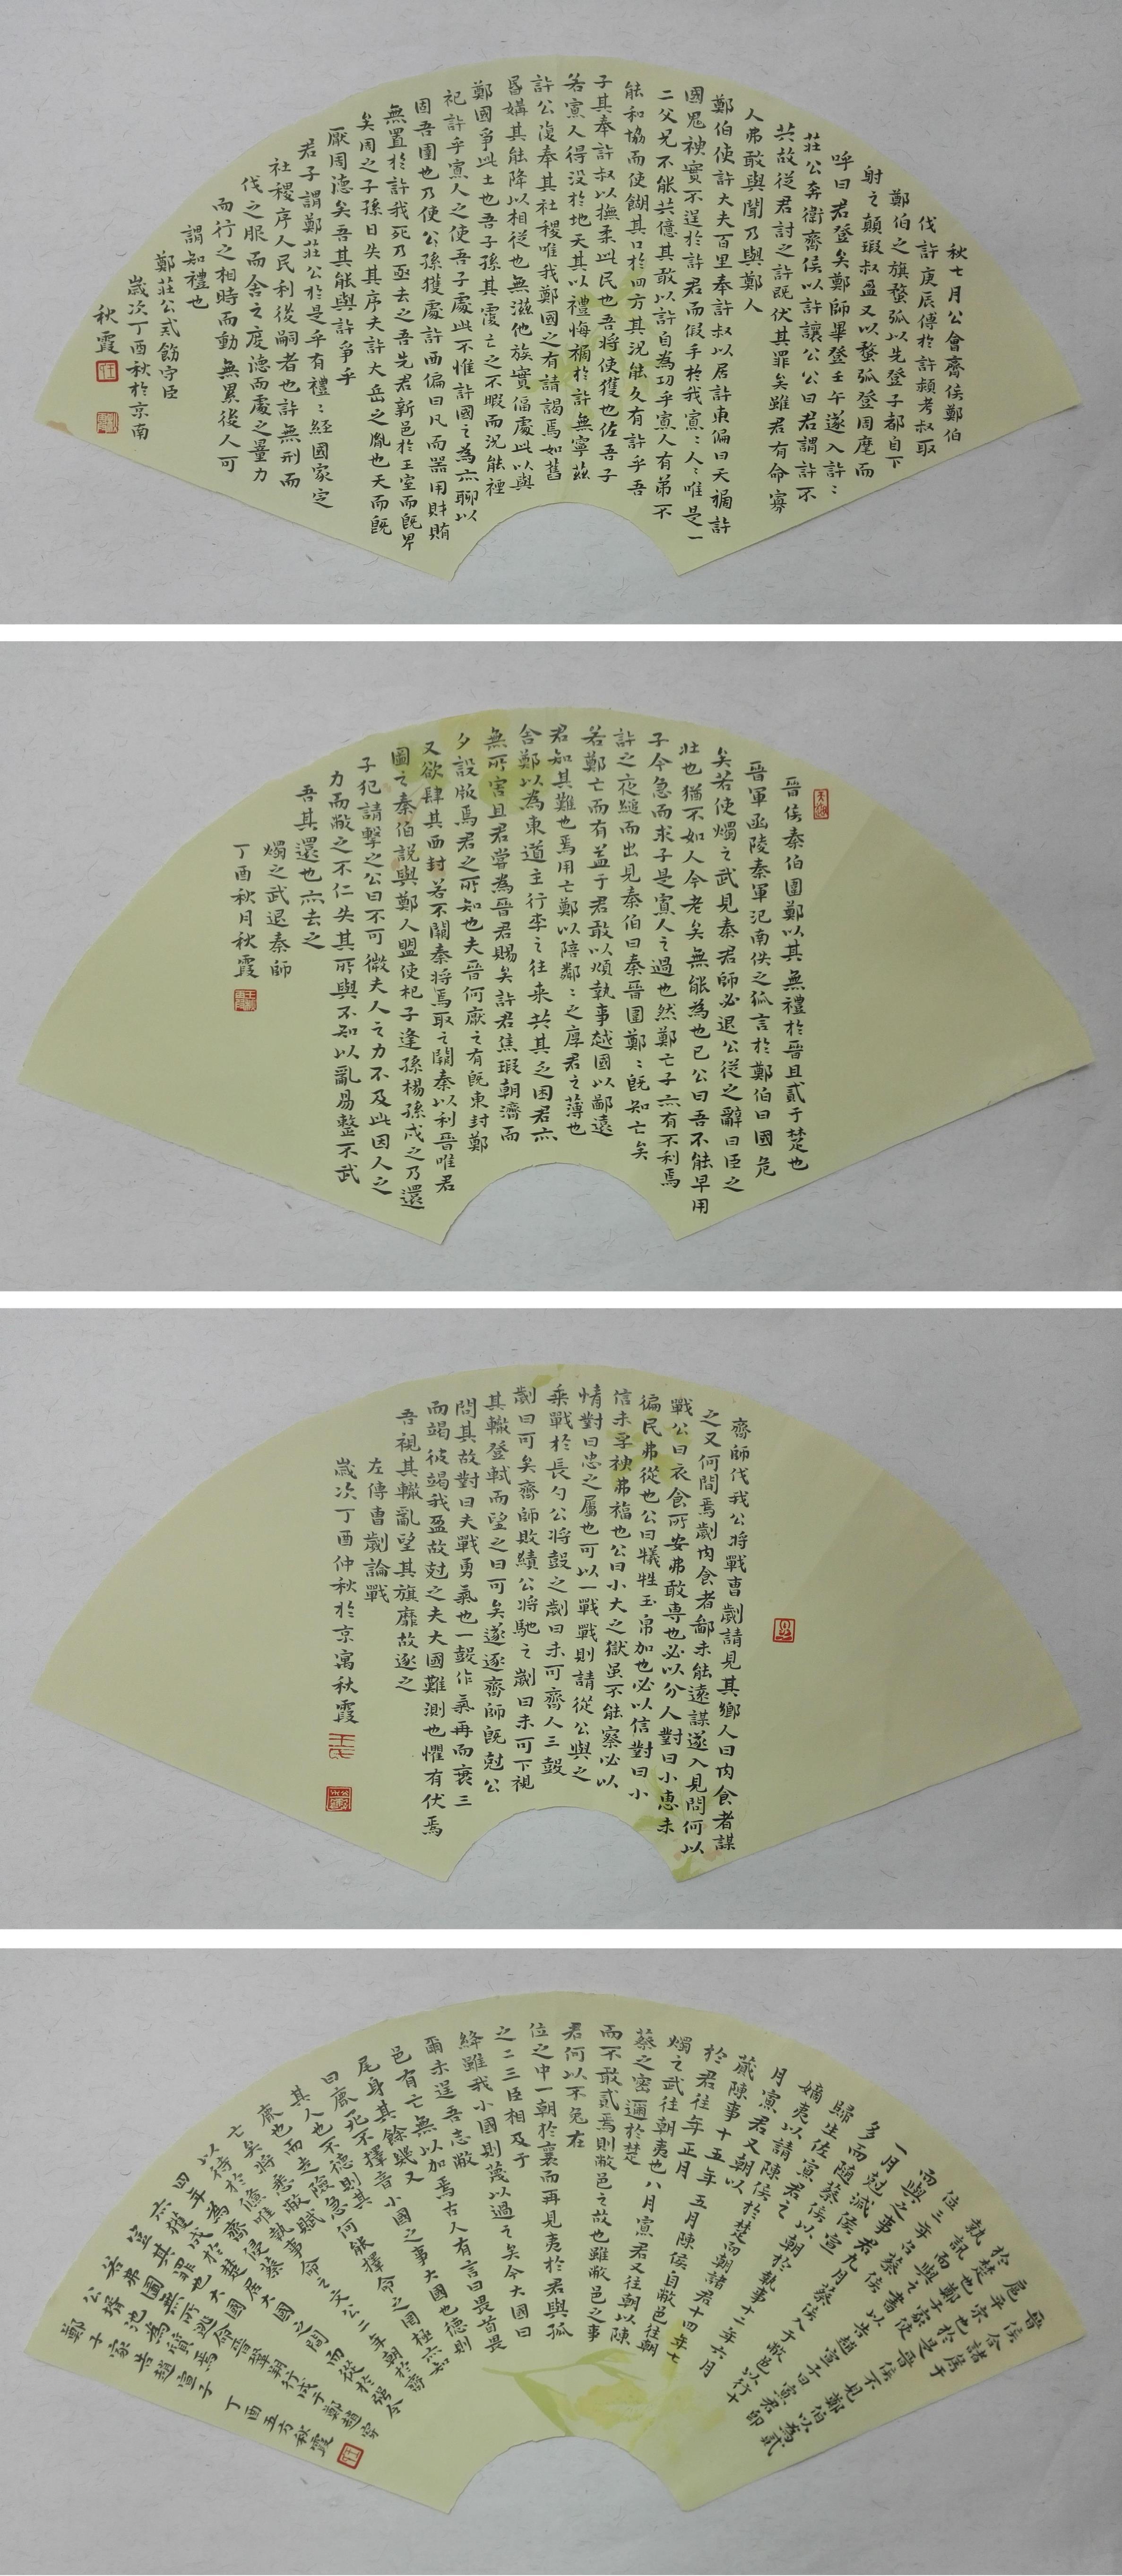 秋七月公會齊侯鄭伯
伐許庚辰傅於許潁考叔取
鄭伯之旗蝥弧以先登子都自下
射之顛瑕叔盈又以蝥弧登周麾而
呼曰君登矣鄭師畢登壬午遂入許:
莊公奔衛齊侯以許讓公公曰君謂許不
共故從君討之許既伏其罪矣雖君有命寡
人弗敢與聞乃與鄭人
鄭伯使許大夫百里奉許叔以居許東偏曰天禍許
國鬼神實不逞於許君而假手於我寡:人:唯是一
二父兄不能共億其敢以許自為功乎寡人有弟不
能和協而使餬其口於四方其況能久有許乎吾
子其奉許叔以撫柔此民也吾將使獲也佐吾子
若寡人得沒於地天其以禮悔禍於許無寧茲
許公復奉其社稷唯我鄭國之有請謁焉如舊
昏媾其能降以相從也無滋他族實偪處此以與
鄭國爭此土也吾子孫其覆亡之不暇而況能禋
祀許乎寡人之使吾子處此不惟許國之為亦聊以
固吾圉也乃使公孫獲處許西偏曰凡而器用財賄
無置於許我死乃亟去之吾先君新邑於王室而既卑
矣周之子孫日失其序夫許大岳之胤也天而既
厭周德矣吾其能與許爭乎
君子謂鄭莊公於是乎有禮:經國家定
社稷序人民利後嗣者也許無刑而
伐之服而舍之度德而處之量力
而行之相時而動無累後人可
謂知禮也
鄭莊公式飭守臣
歲次丁酉秋於京南
秋霞
晉侯秦伯圍鄭以其無禮於晉且貳于楚也
晉軍函陵秦軍氾南佚之狐言於鄭伯曰國危
矣若使燭之武見秦君師必退公從之辭曰臣之
壯也猶不如人今老矣無能為也已公曰吾不能早用
子今急而求子是寡人之過也然鄭亡子亦有不利焉
許之夜縋而出見秦伯曰秦晉圍鄭:既知亡矣
若鄭亡而有益于君敢以煩執事越國以鄙遠
君知其難也焉用亡鄭以陪鄰:之厚君之薄也
舍鄭以為東道主行李之往來共其乏困君亦
無所害且君嘗為晉君賜矣許君焦瑕朝濟而
夕設版焉君之所知也夫晉何厭之有既東封鄭
又欲肆其西封若不闕秦將焉取之闕秦以利晉唯君
圖之秦伯說與鄭人盟使杞子逢孫楊孫戍之乃還
子犯請擊之公曰不可微夫人之力不及此因人之
力而敝之不仁失其所與不知以亂易整不武
吾其還也亦去之
燭之武退秦師
丁酉秋月秋霞
齊師伐我公將戰曹劌請見其鄉人曰肉食者謀
之又何間焉劌肉食者鄙未能遠謀遂入見問何以
戰公曰衣食所安弗敢專也必以分人對曰小惠未
徧民弗從也公曰犧牲玉帛加也必以信對曰小
信未孚神弗福也公曰小大之獄虽不能察必以
情對曰忠之屬也可以一戰戰則請從公與之
乘戰於長勺公將鼓之劌曰未可齊人三鼓
劌曰可矣齊師敗績公將馳之劌曰未可下視
其轍登軾而望之曰可矣遂逐齊師既尅公
問其故對曰夫戰勇氣也一鼓作氣再而衰三
而竭彼竭我盈故尅之夫大國難測也懼有伏焉
吾視其轍亂望其旗靡故逐之
左傳曹劌論戰
歲次丁酉仲秋於京寓秋霞
晉侯合諸侯于
扈平宋也於是晉侯不見鄭伯以為貳
於楚也鄭子家使
執訊而與之書以告趙宣子曰寡君即
位三年召蔡侯
而與之事君九月蔡侯入于敝邑以行十
一月
多而隨蔡侯以朝於執事十二年六月
歸生佐寡君之
嫡夷以請陳侯於楚而朝諸君十四年七
月寡君又朝以
蕆陳事十五年五月陳侯自敝邑往朝
於君往年正月
燭之武往朝夷也八月寡君又往朝以陳
蔡之密邇於楚
而不敢貳焉則敝邑之故也雖敝邑之事
君何以不免在
位之中一朝於襄而再見夷於君與孤
之二三臣相及于
絳雖我小國則蔑以過之矣今大國曰
爾未逞吾志敝
邑有亡無以加焉古人有言曰畏首畏
尾身其餘幾又
曰鹿死不擇音小國之事大國也德則
其人也不德則其
鹿也
鄭子家告趙宣子
丁酉五方秋霞